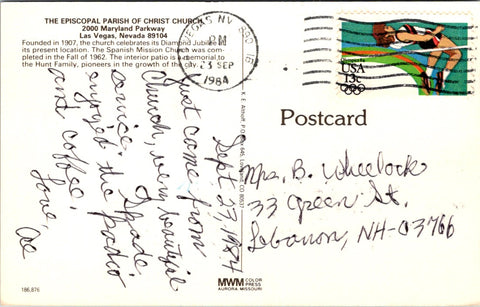 THE EPISCOPAL PARISH OF CHRIST CHURCH
2000 Maryland Parkway
Las Vegas, Nevada 89104
Founded in 1907, the church celebrates its Diamond Jubilee in
its present location. The Spanish Mission Church was com-
pleted in the Fall of 1962. The interior patio is a memorial to
the Hunt Family, pioneers in the growth of the city.
VEGAS NV 890
PM
23 SEP
1984
USA
13c
Postcard
K. E. Althoff, P.O. Box 645, CO 80537
Sept 23, 1984
Just came from
Church, very beautiful
service.
enjoyed the patio
and coffee.
Love,
Mrs. B. Wheelock
33 Green St.
Lebanon, NH-03766
186,876
MWM COLOR
PRESS
AURORA MISSOURI